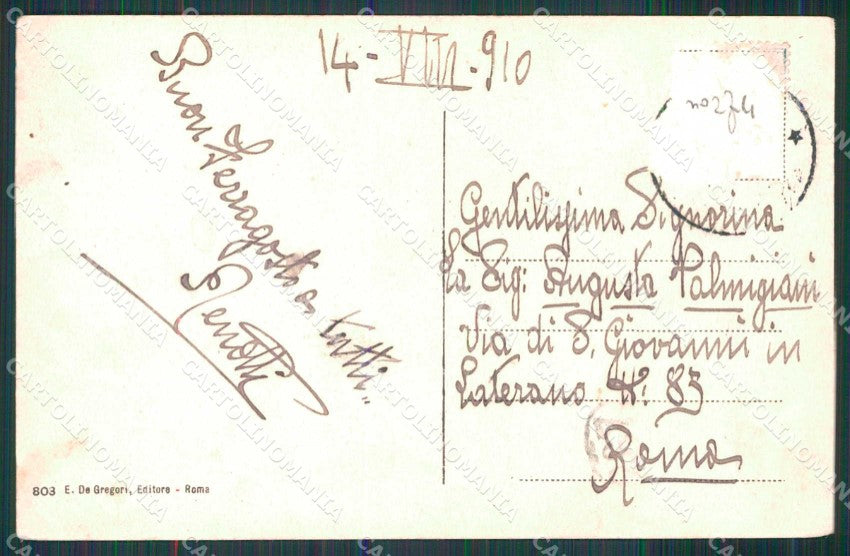 14-VIII-910
Buon Ferragosto a tutti..
Renotti
no 274
Gentilissima Signorina
La Sig: Augusta Palmigiani
Via di S. Giovanni in
Laterano N° 83
Roma
803 E. De Gregori, Editore - Roma
CARTOLINOMANIA